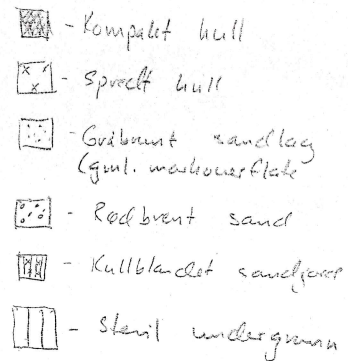 - Kompakt kull
- Spredt kull
- Gråbrunt sandlag
(gml. markoverflate
- Rødbrent sand
- Kullblandet sandjord
- Steril undergrunn